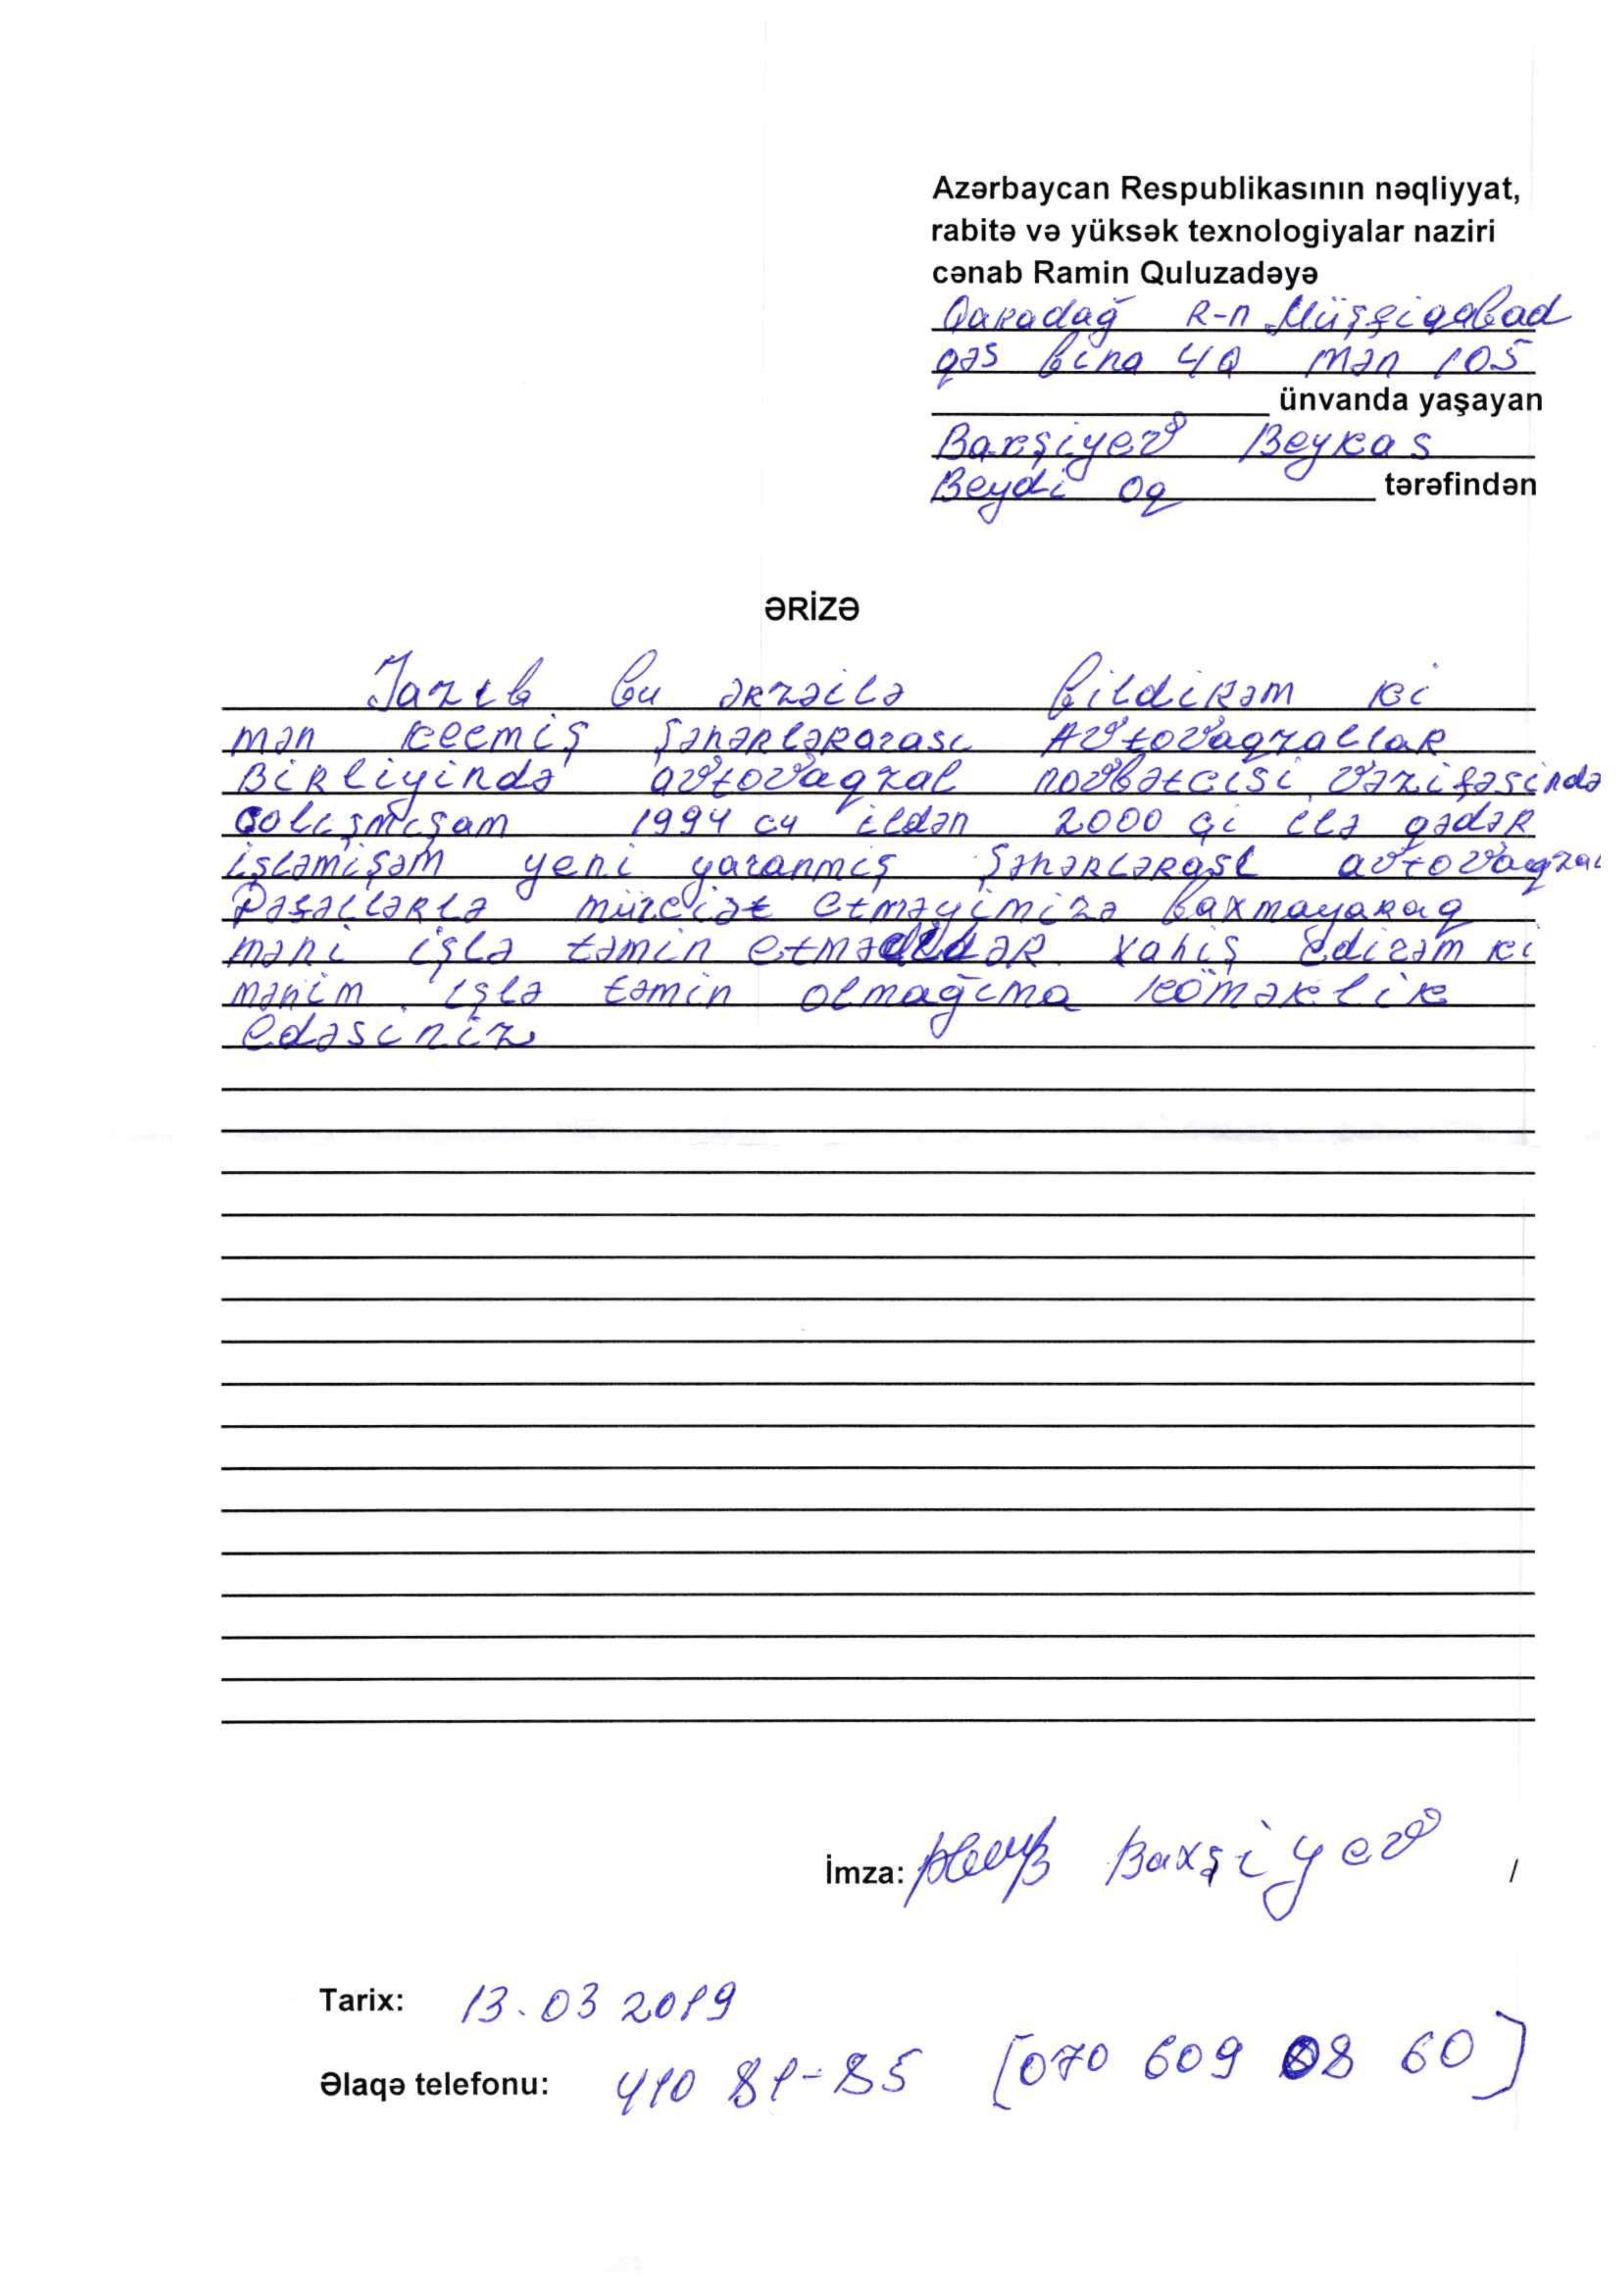 Azərbaycan Respublikasının nəqliyyat,
rabitə və yüksək texnologiyalar naziri
cənab Ramin Quluzadəyə
Qaradağ R-n Müşfiqabad
qəs bina 4Q mən 105
ünvanda yaşayan
Barşiyev Beykas
Beydi oq tərəfindən
ƏRİZƏ
Yazıb bu ərzəilə bildirəm ki
mən keçmiş Şəhərlərarası Avtovaqzallar
Birliyində avtovaqzal novbətcisi vəzifəsində
çalışmışam 1994 cu ildən 2000 çi ilə qədər
işləmişəm yeni yaranmış Şəhərlərası avtovaqzal
Dəfəllərlə mürciət etməyimizə baxmayaraq
məni işlə təmin etmədilər xahiş edirəm ki
mənim işlə təmin olmağıma köməklik
edəsiniz
İmza: Baxşiyev /
Tarix: 13.03 2019
Əlaqə telefonu: 410 81-85 [070 609 08 60]